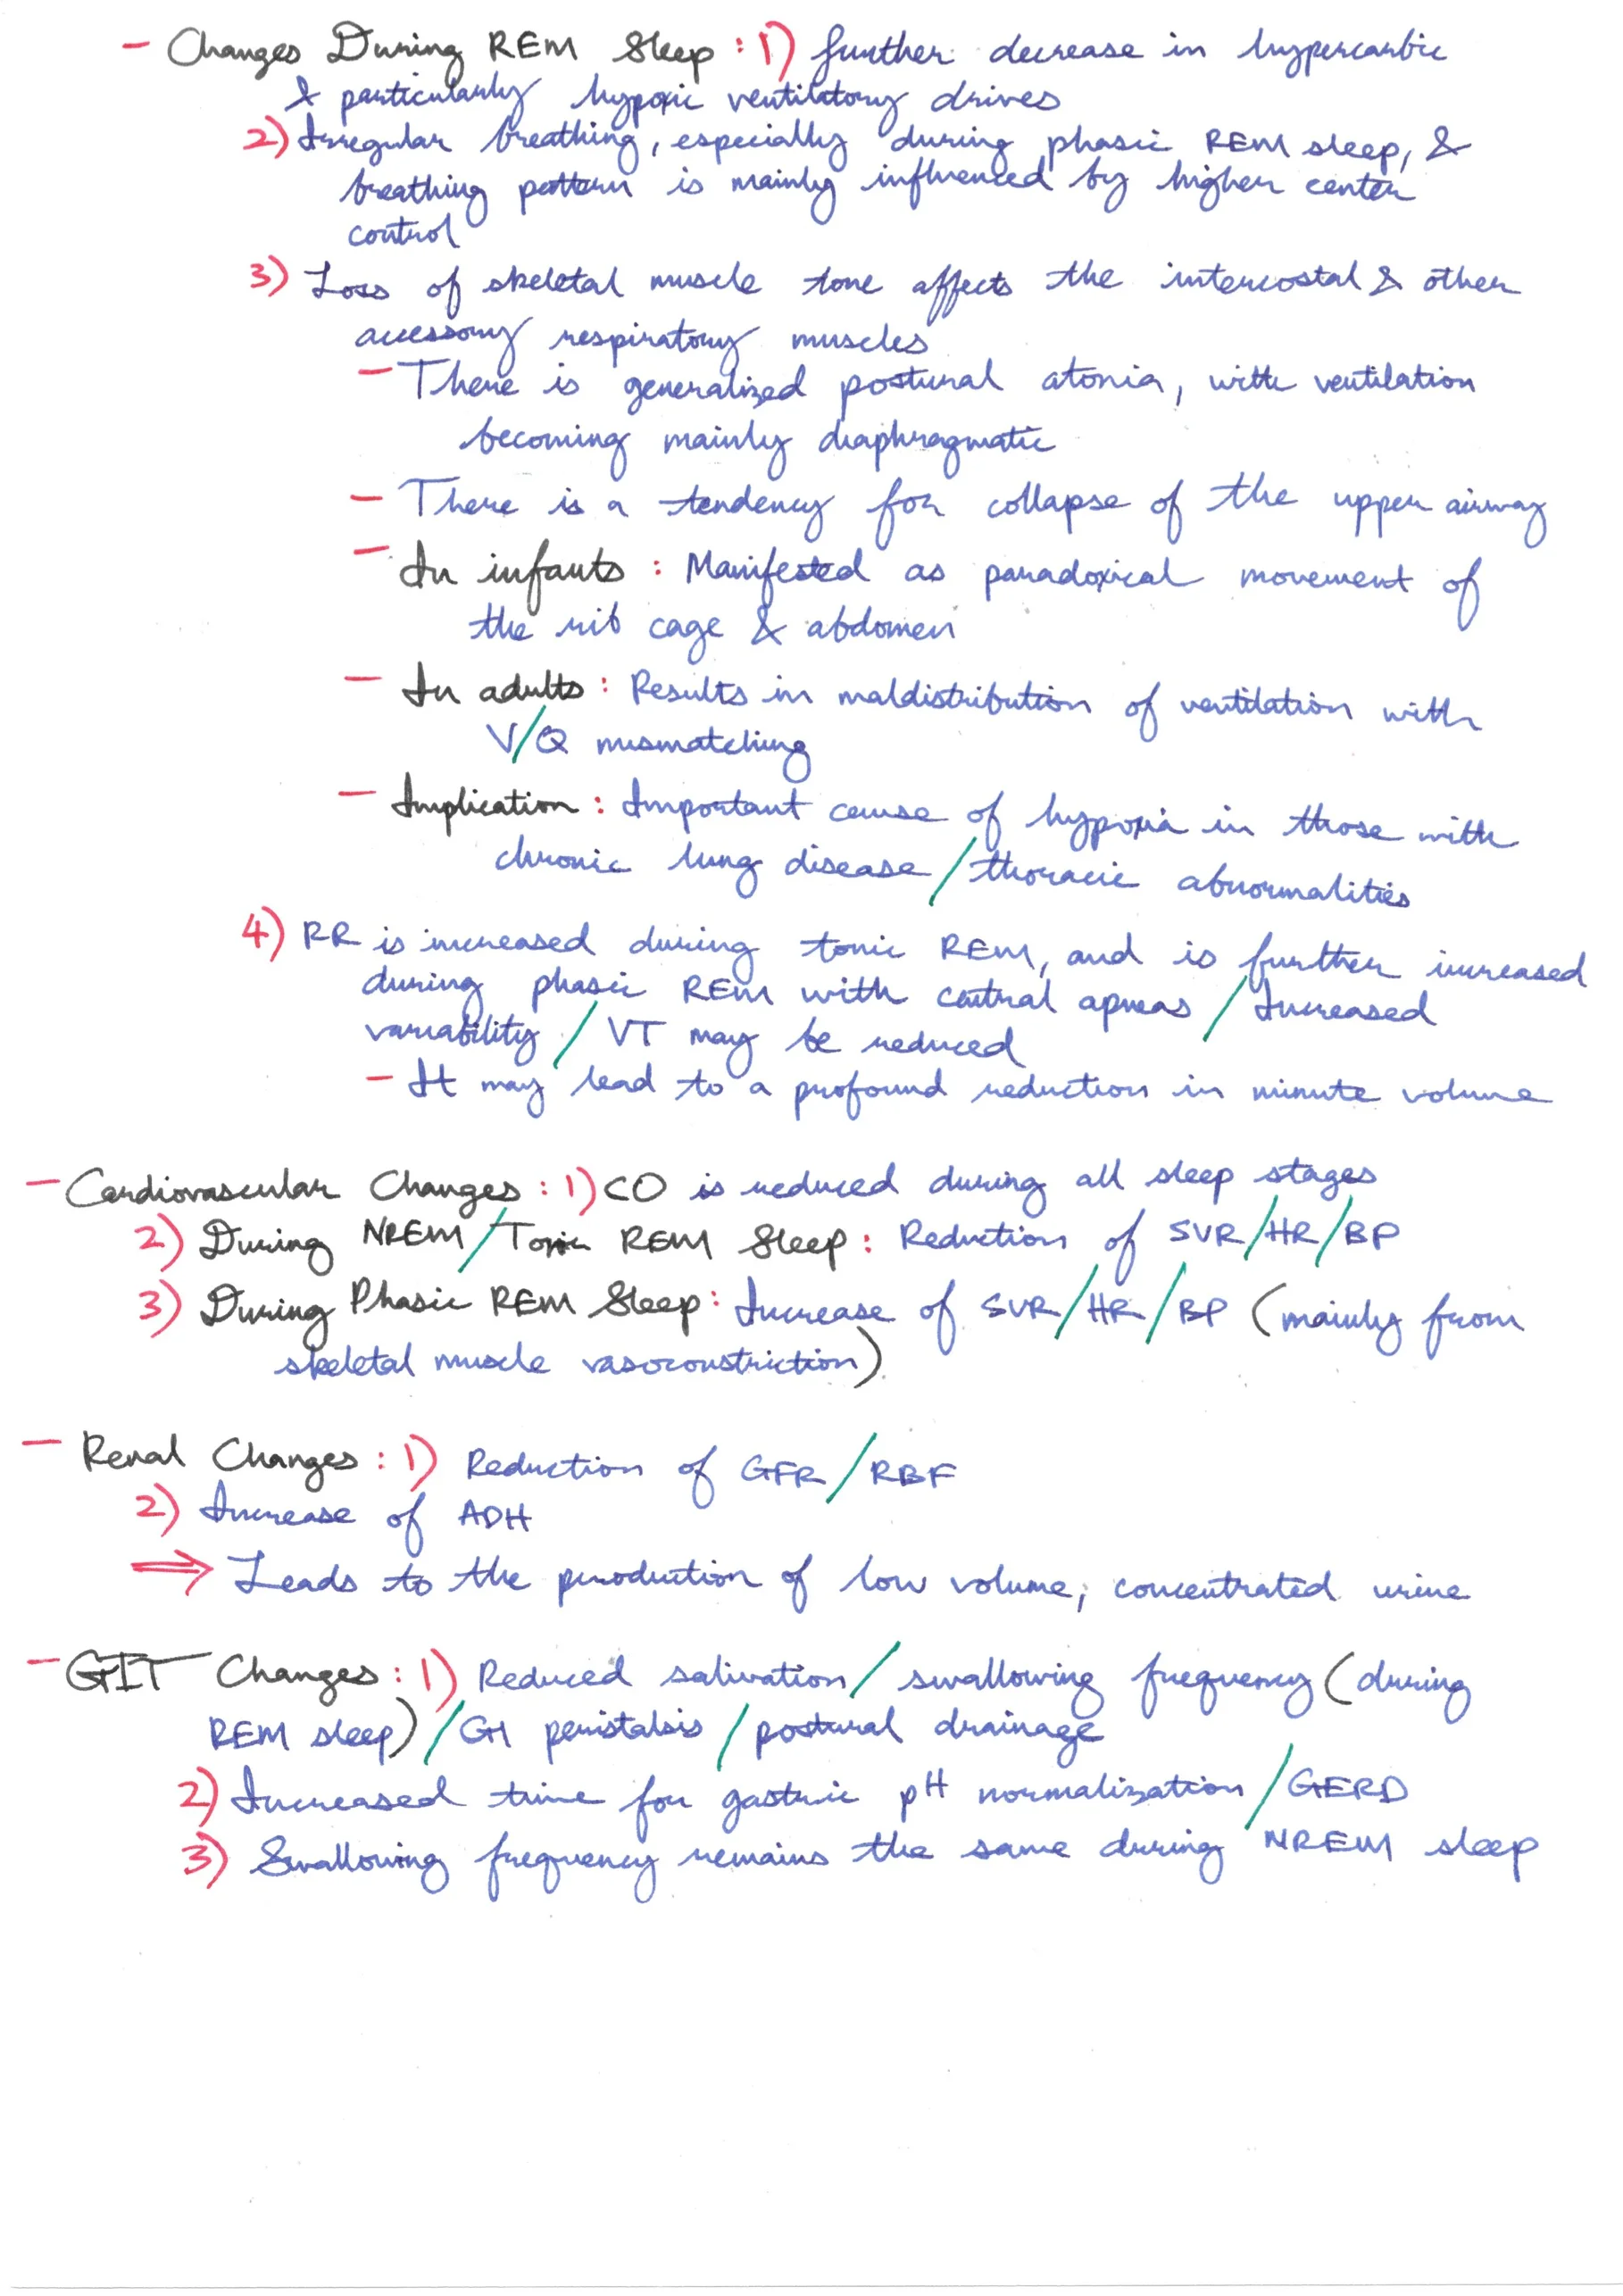 - Changes During REM Sleep : 1) further decrease in hypercarbic
& particularly hypoxic ventilatory drives
2) Irregular breathing, especially during phasic REM sleep, &
breathing pattern is mainly influenced by higher center
control
3) Loss of skeletal muscle tone affects the intercostal & other
accessory respiratory muscles
- There is generalized postural atonia, with ventilation
becoming mainly diaphragmatic
- There is a tendency for collapse of the upper airway
- In infants : Manifested as paradoxical movement of
the rib cage & abdomen
- In adults : Results in maldistribution of ventilation with
V/Q mismatching
- Implication : Important cause of hypoxia in those with
chronic lung disease / thoracic abnormalities
4) RR is increased during tonic REM, and is further increased
during phasic REM with central apneas / Increased
variability / VT may be reduced
- It may lead to a profound reduction in minute volume
- Cardiovascular Changes : 1) CO is reduced during all sleep stages
2) During NREM / Tonic REM Sleep : Reduction of SVR / HR / BP
3) During Phasic REM Sleep : Increase of SVR / HR / BP (mainly from
skeletal muscle vasoconstriction)
- Renal Changes : 1) Reduction of GFR / RBF
2) Increase of ADH
⇒ Leads to the production of low volume, concentrated urine
- GIT Changes : 1) Reduced salivation / swallowing frequency (during
REM sleep) / GI peristalsis / postural drainage
2) Increased time for gastric pH normalization / GERD
3) Swallowing frequency remains the same during NREM sleep